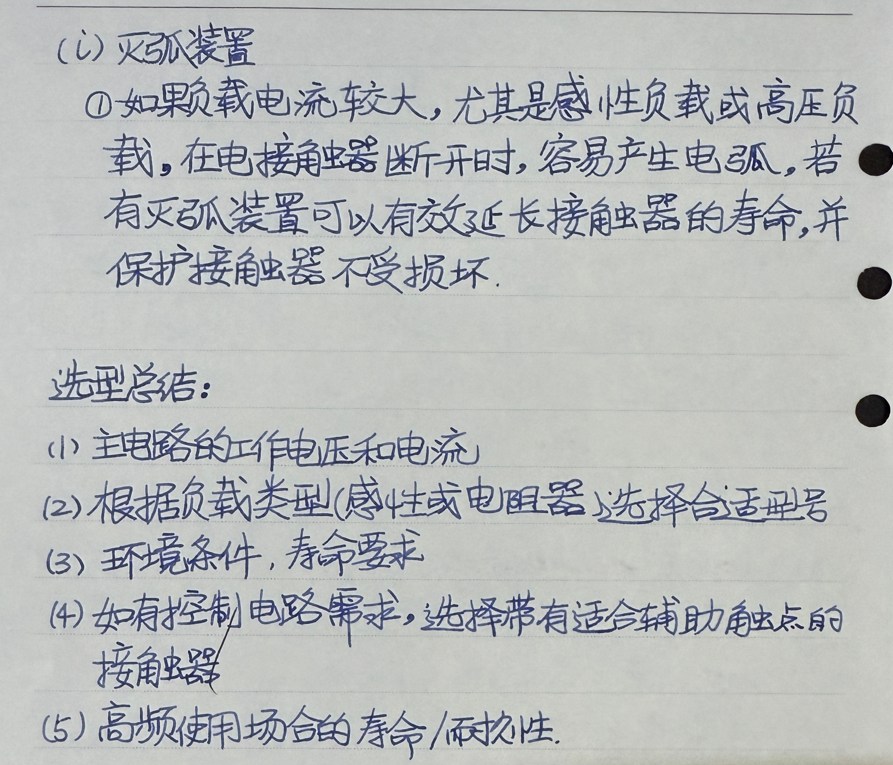 (i) 灭弧装置
① 如果负载电流较大，尤其是感性负载或高压负
载，在电接触器断开时，容易产生电弧，若
有灭弧装置可以有效延长接触器的寿命，并
保护接触器不受损坏.
选型总结：
(1) 主电路的工作电压和电流
(2) 根据负载类型(感性或电阻器)选择合适型号
(3) 环境条件，寿命要求
(4) 如有控制电路需求，选择带有适合辅助触点的
接触器
(5) 高频使用场合的寿命/耐扰性.